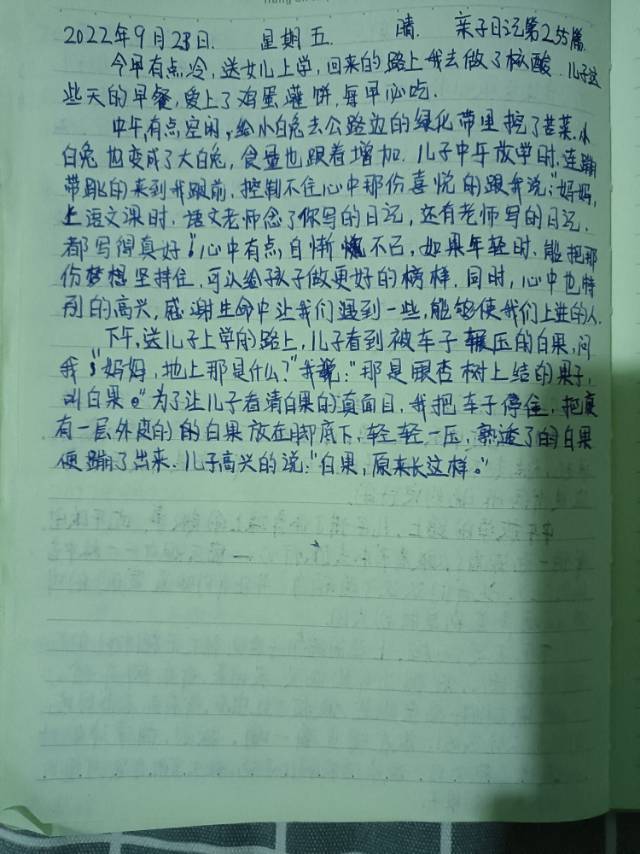 2022年9月23日. 星期五. 晴. 亲子日记第255篇.
今早有点冷,送女儿上学,回来的路上我去做了核酸.儿子这
些天的早餐,爱上了鸡蛋灌饼,每早必吃.
中午,有点空闲,给小白兔去公路边的绿化带里挖了苦菜.小
白兔也变成了大白兔,食量也跟着增加.儿子中午放学时,连蹦
带跳的来到我跟前,控制不住心中那份喜悦的跟我说:"妈妈,
上语文课时,语文老师念了你写的日记,还有老师写的日记,
都写得真好!心中有点自惭 不已,如果年轻时,能把那
份梦想坚持住,可以给孩子做更好的榜样.同时,心中也特
别的高兴,感谢生命中让我们遇到一些,能够使我们上进的人.
下午,送儿子上学的路上,儿子看到被车子辗压的白果,问
我:"妈妈,地上那是什么?"我说:"那是银杏树上结的果子,
叫白果。"为了让儿子看清白果的真面目,我把车子停住,把裹
有一层外皮的的白果放在脚底下,轻轻一压,熟透了的白果
便蹦了出来.儿子高兴的说:"白果,原来长这样。"